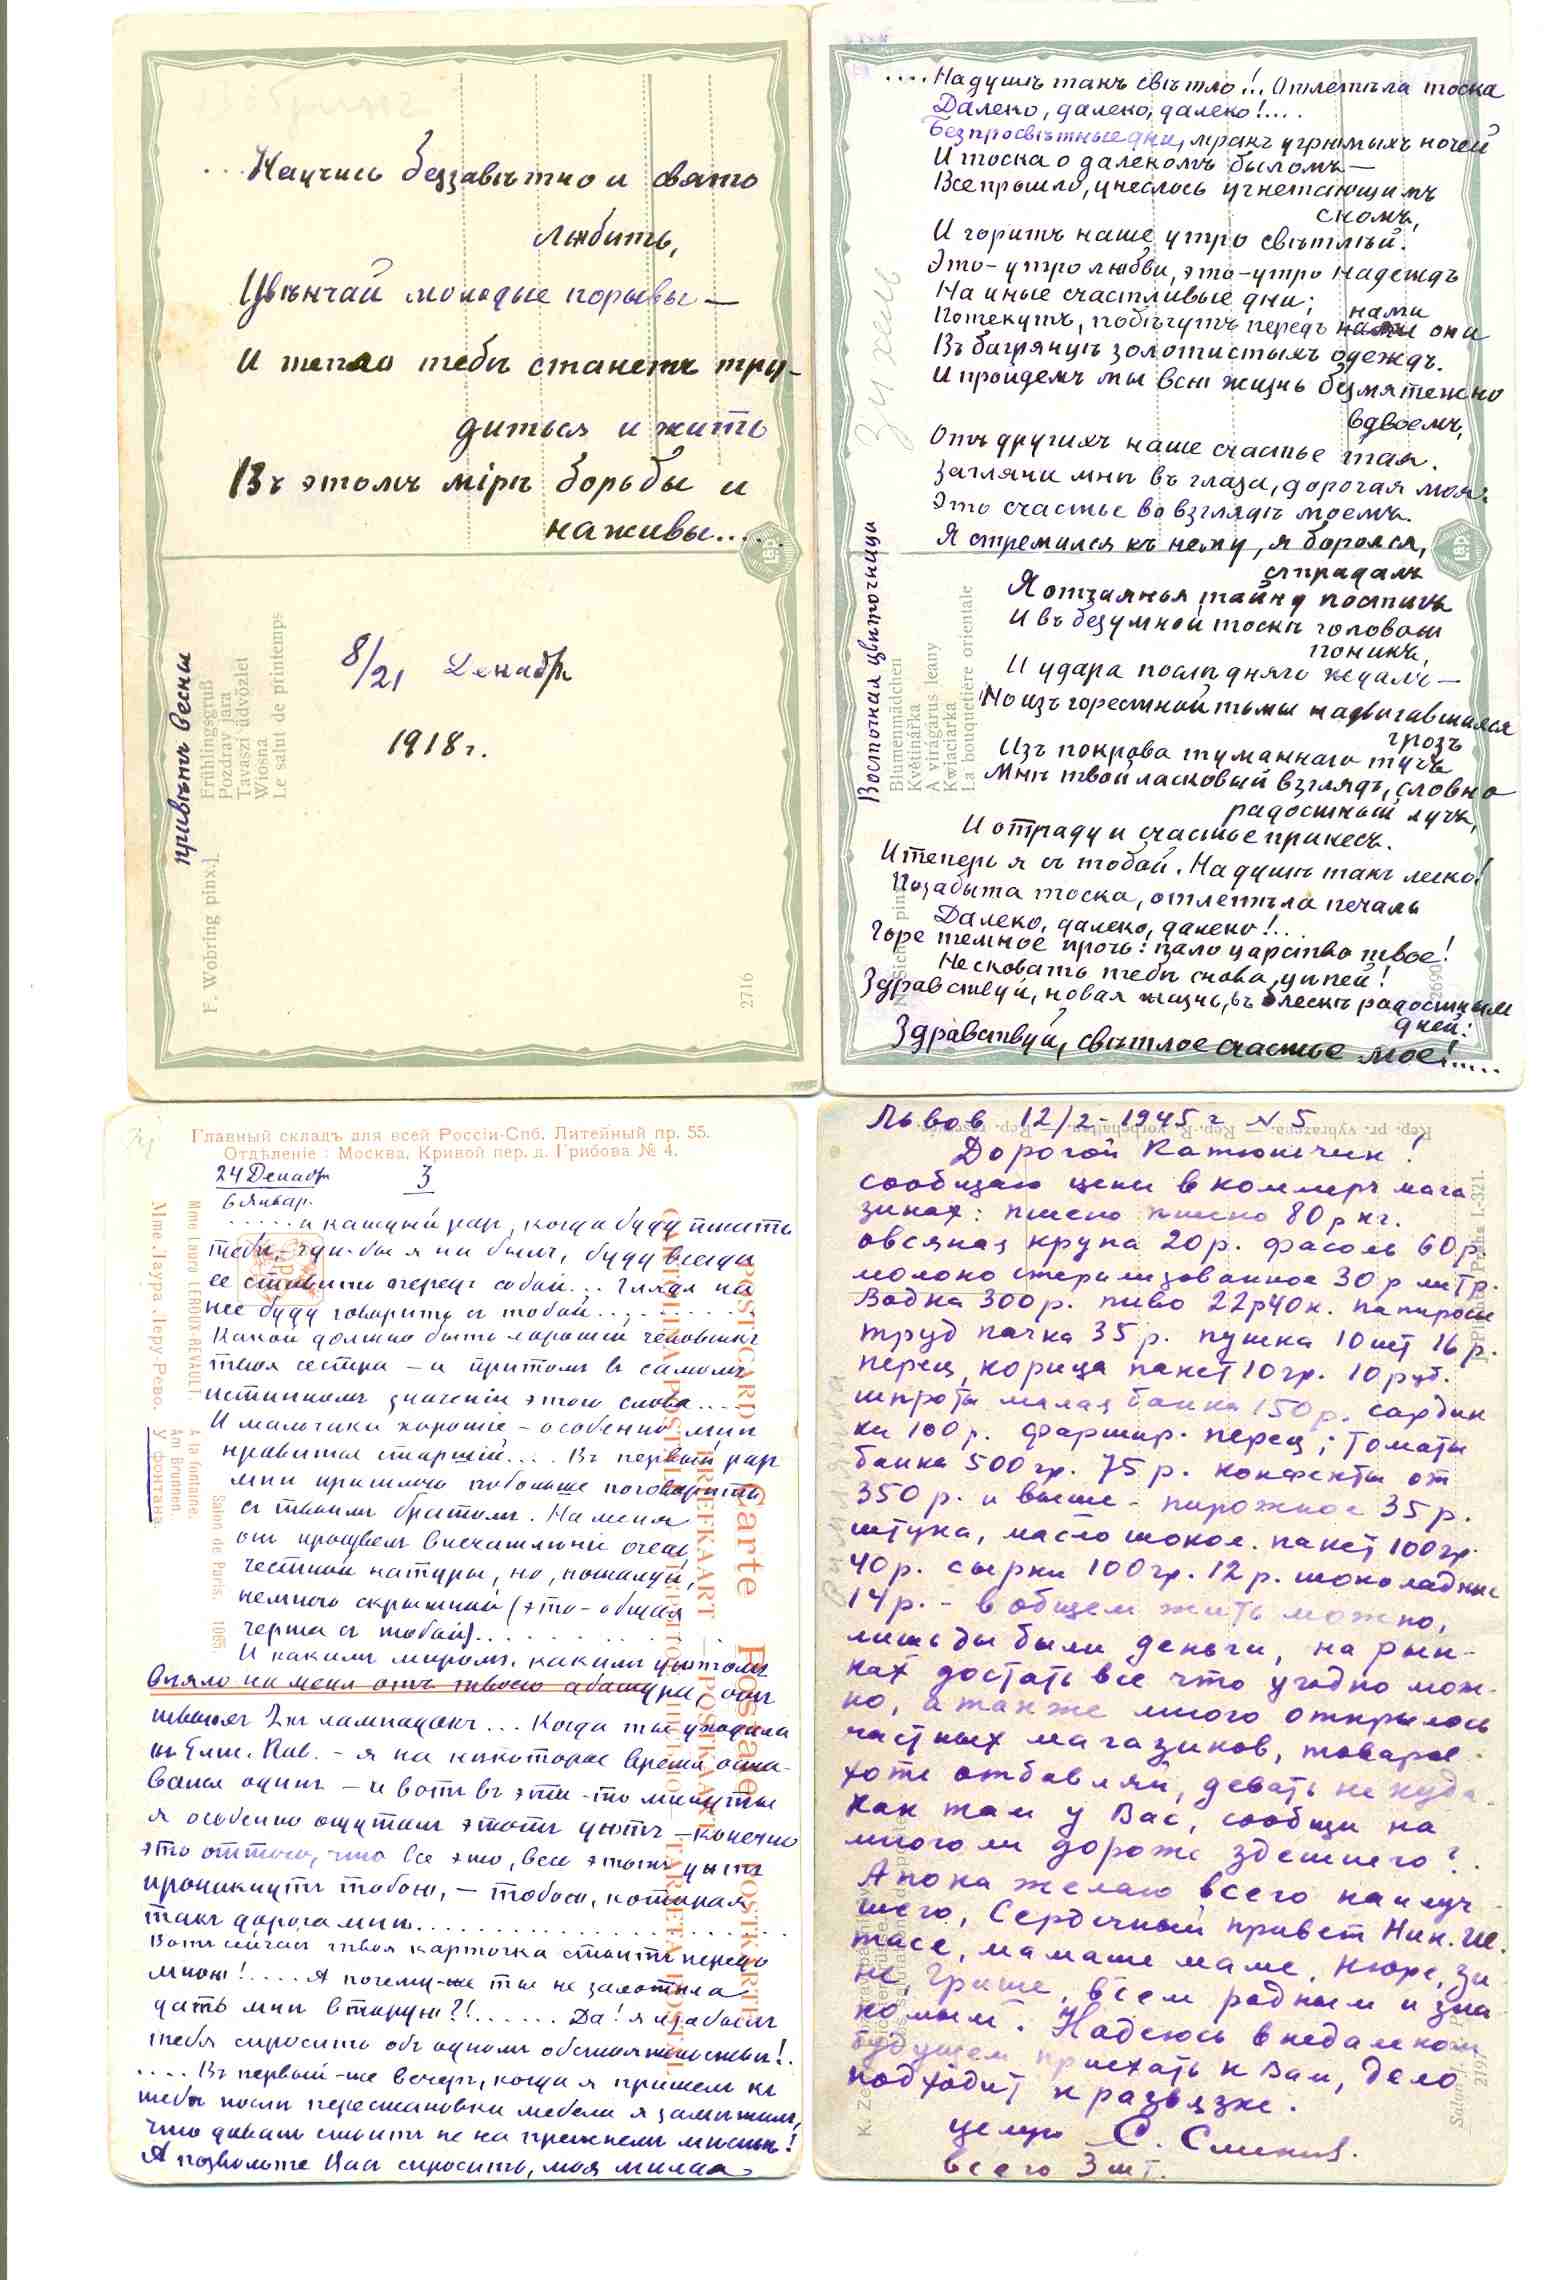 ...Научись беззавѣтно и свято
любить,
Увѣнчай молодые порывы —
И тепло тебѣ станетъ тру-
диться и жить
Въ этомъ мірѣ борьбы и
наживы......
8/21 Декабр
1918 г.
привѣтъ весны
Frühlingsgruß
Pozdrav jara
Tavaszi üdvözlet
Wiosna
Le salut de printemps
F. Wobring pinx.
2716
....На душѣ такъ свѣтло!.. Отлетѣла тоска
Далеко, далеко, далеко!....
Безпросвѣтные дни, мракъ угрюмыхъ ночей
И тоска о далекомъ быломъ —
Все прошло, унеслось угнетающимъ
сномъ,
И горитъ наше утро свѣтлѣй.
Это - утро любви, это - утро надеждъ
На иные счастливые дни;
Потекутъ, побѣгутъ передъ нами они
Въ багрянцѣ золотистыхъ одеждъ.
И пройдемъ мы всю жизнь безмятежно
вдвоемъ,
Отъ другихъ наше счастье тая.
Загляни мнѣ въ глаза, дорогая моя:
Это счастье во взглядѣ моемъ.
Я стремился къ нему, я боролся,
страдалъ
Я отчаянья тайну постигъ
И въ безумной тоскѣ головою
поникъ,
И удара послѣдняго ждалъ —
Но изъ горестной тьмы надвигавшихся
грозъ
Изъ покрова туманнаго тучъ
Мнѣ твой ласковый взглядъ, словно
радостный лучъ,
И отраду и счастье принесъ.
И теперь я съ тобой. На душѣ такъ легко!
Позабыта тоска, отлетѣла печаль
Далеко, далеко, далеко!...
Горе темное прочь: пало царство твое!
Не сковать тебѣ снова цѣпей!
Здравствуй, новая жизнь, въ блескѣ радостныхъ
дней:
Здравствуй, свѣтлое счастье мое!.....
Восточная цвѣточница
Blumenmädchen
Květinářka
A virágárus leany
Kwiaciarka
La bouquetière orientale
2690
Главный складъ для всей Россіи-Спб. Литейный пр. 55.
Отдѣленіе: Москва, Кривой пер. д. Грибова № 4.
24 Декабр
6 Январ.
3
.....и каждый раз, когда буду писать
тебѣ, - гдѣ-бы я ни былъ, буду всегда
ее ставить передъ собой... Глядя на
нее буду говорить съ тобой..........
Какой должно быть хорошій человѣкъ
твоя сестра - и притомъ въ самомъ
истинномъ значеніи этого слова....
И мальчики хорошіе - особенно мнѣ
нравится старшій.... Въ первый раз
мнѣ пришлось побольше поговорить
съ твоимъ братомъ. На меня
он произвелъ впечатлѣніе очень
честной натуры, но, пожалуй,
немного скрытной (это - общая
черта съ тобой)............
И какимъ миромъ, какимъ уютомъ
вѣяло на меня отъ твоего абажура, отъ
твоихъ 2хъ лампадокъ... Когда ты уходила
къ Елис. Пав. - я на нѣкоторое время оста-
вался одинъ - и вотъ въ эти-то минуты
я особенно ощутилъ этотъ уютъ - конечно
это оттого, что все это, весь этотъ уютъ
проникнутъ тобою, - тобою, которая
такъ дорога мнѣ..............
Вотъ сейчас твоя карточка стоитъ передо
мною!.... А почему-же ты не захотѣла
дать мнѣ вторую?!...... Да! я забылъ
тебя спросить объ одномъ обстоятельствѣ!..
.... Въ первый-же вечеръ, когда я пришелъ къ
тебѣ послѣ перестановки мебели я замѣтилъ,
что диванъ стоитъ не на прежнемъ мѣстѣ!
А позвольте Васъ спросить, моя милая
Mme Laure LEROUX REVAULT.
A la fontaine.
Am Brunnen.
Mme Лаура Леру-Рево.
У фонтана.
Salon de Paris.
POSTCARD Carte Postale POSTKARTE
BRIEFKAART
Львов 12/2 - 1945 г N 5
Дорогой Катюнчик!
сообщаю цены в коммерч мага
зинах: пшено пшено 80 р кг.
овсяная крупа 20 р. фасоль 60 р.
молоко стерилизованное 30 р литр.
Водка 300 р. пиво 22 р 40 к. папиросы
труд пачка 35 р. пушка 10 шт 16 р.
перец, корица пакет 10 гр. 10 руб.
шпроты малая банка 150 р. сардин
ки 100 р. фаршир. перец; томаты
банка 500 гр. 75 р. конфекты от
350 р. и выше - пирожное 35 р.
штука, масло шокол. пакет 100 гр.
40 р. сырки 100 гр. 12 р. шоколадные
14 р. - в общем жить можно,
лишь бы были деньги, на рын-
ках достать все что угодно мож-
но, а также много открылось
частных магазинов, товаров
хоть отбавляй, девать не куда.
как там у Вас, сообщи на
много ли дороже здешнего?.
А пока желаю всего наилуч
шего, Сердечный привет Ник. Ш.
тасе, мамаше маме, Нюре, Зи
не, Грише, всем родным и зна
комым. Надеюсь в недалеком
будущем приехать к Вам, дело
подходит к развязке.
целую С.
всего 3 шт.
Rep. pr. vyhrazena. Rep. R. vorbehalten.